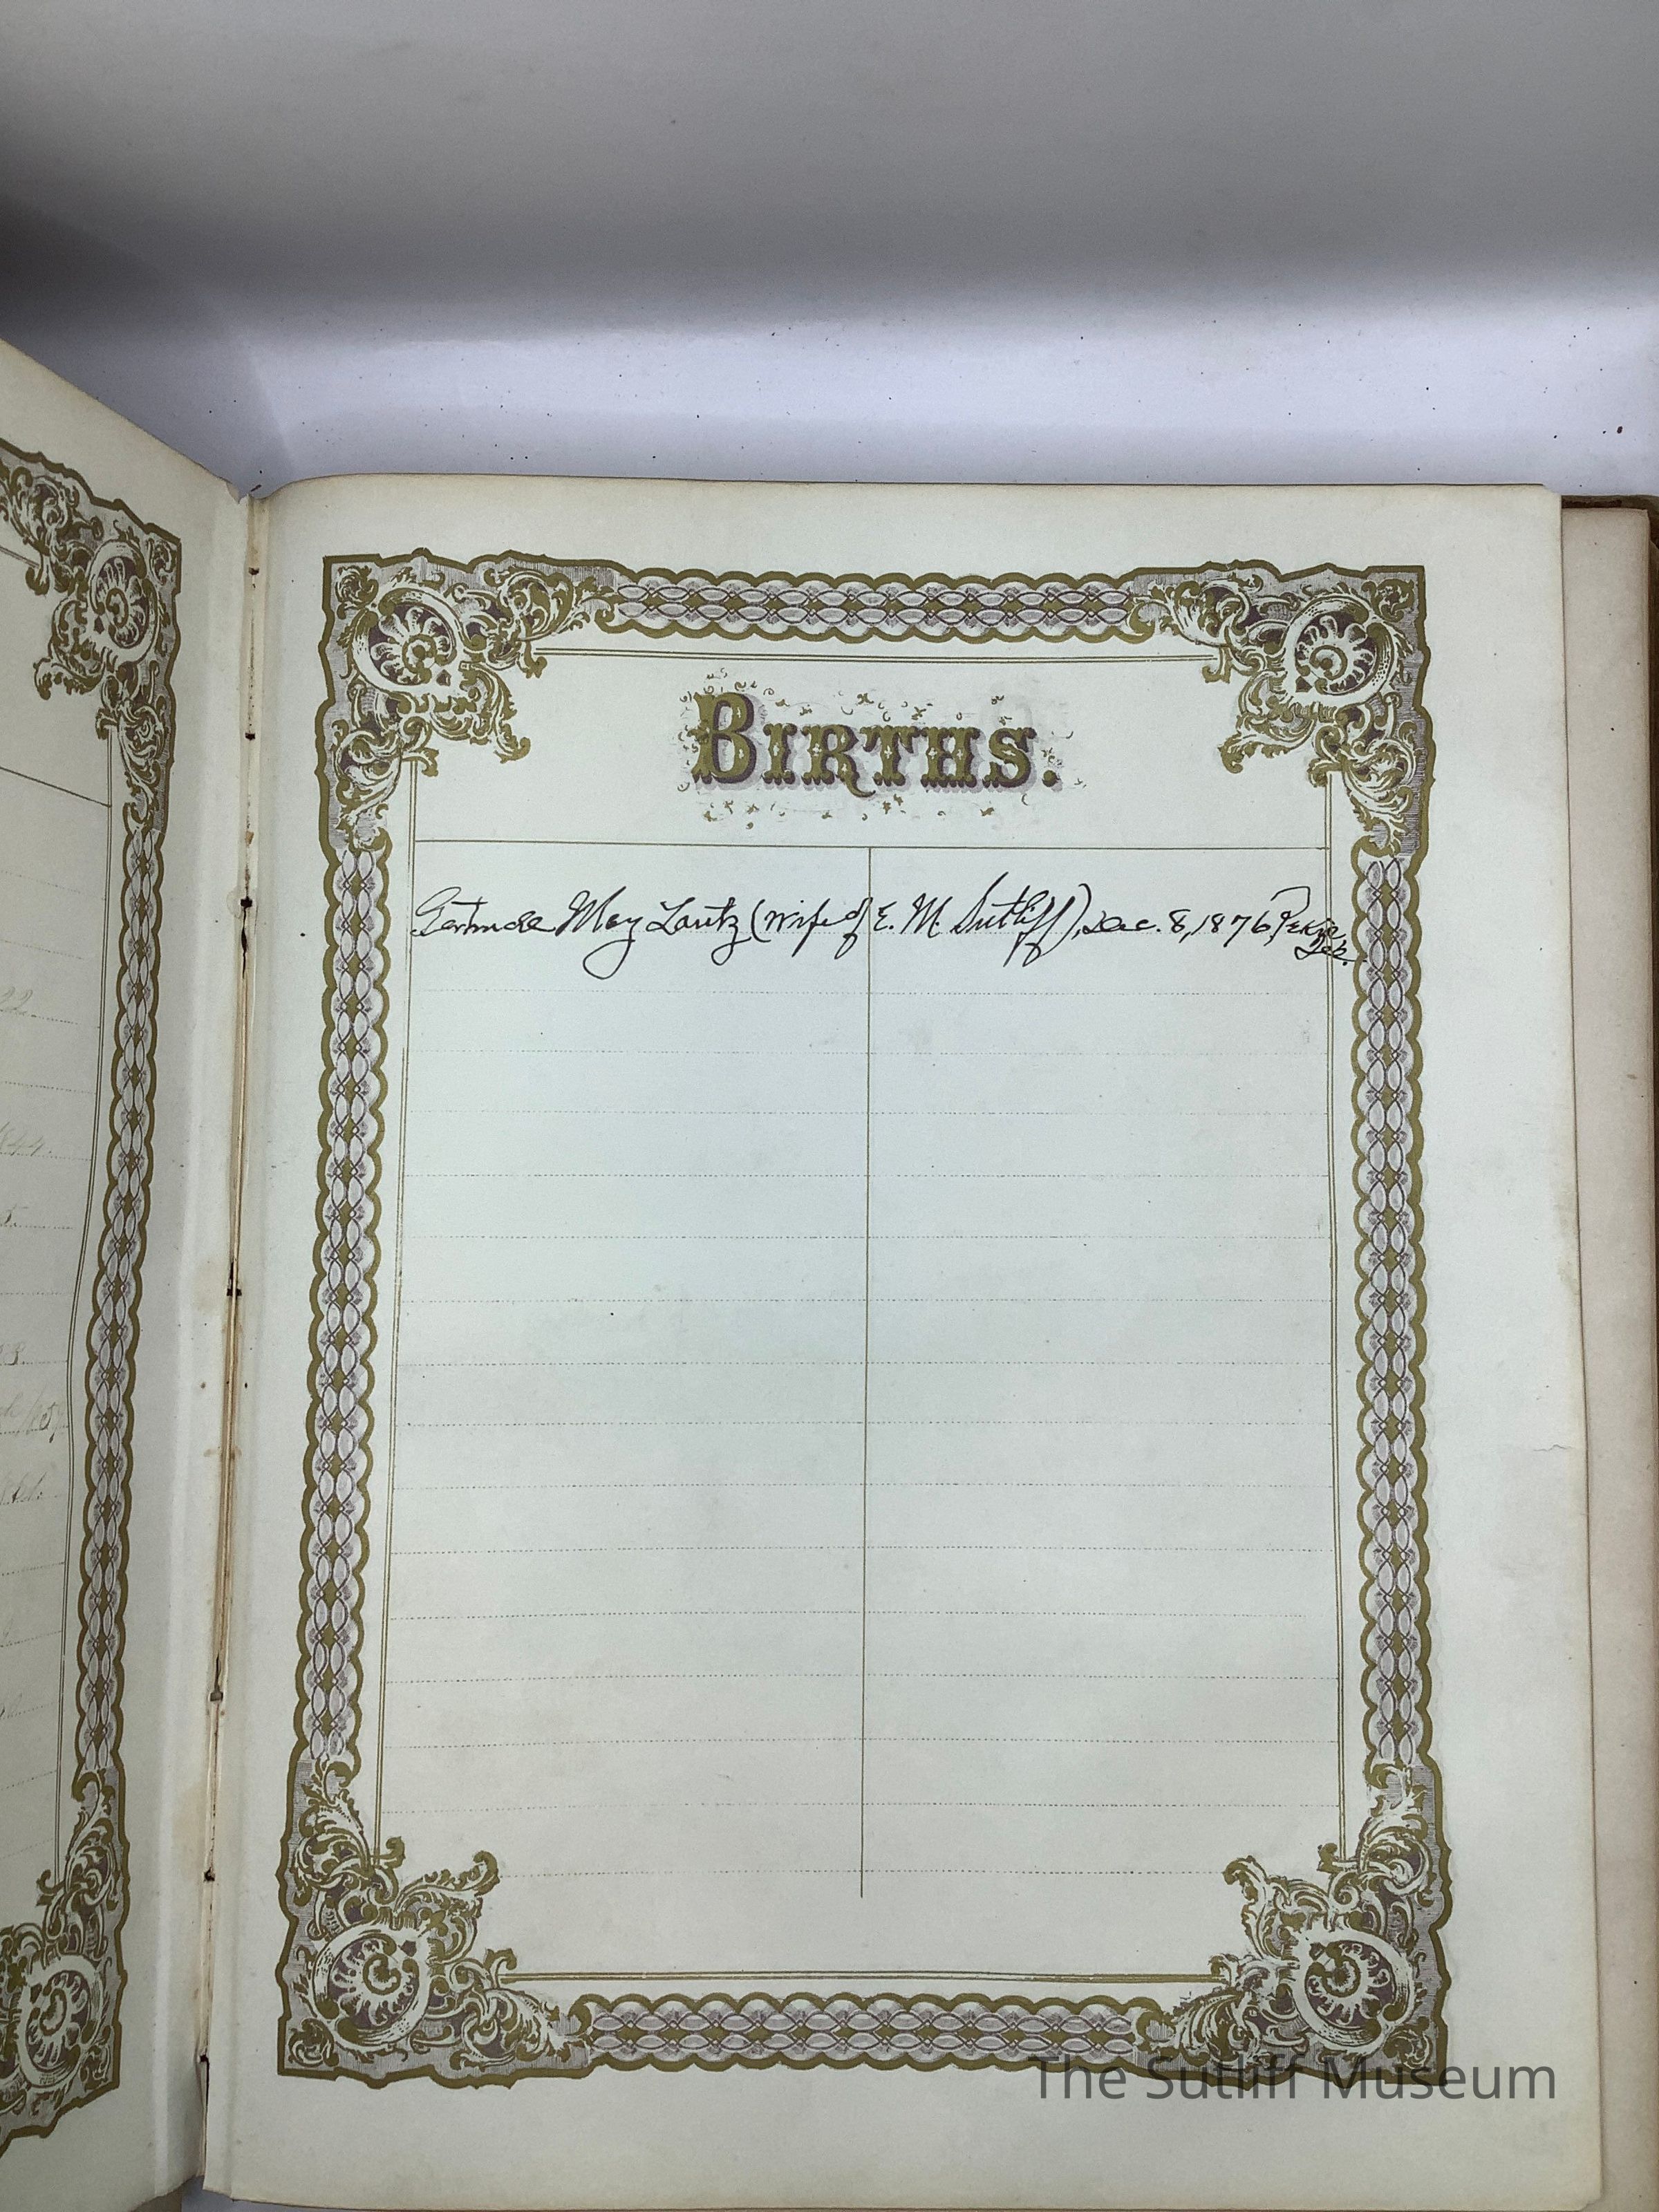 22
844.
5.
3.
BIRTHS.
Gertrude May Lautz (wife of E. M. Sutliff), Dec. 8, 1876, Pekin
The Sutliff Museum